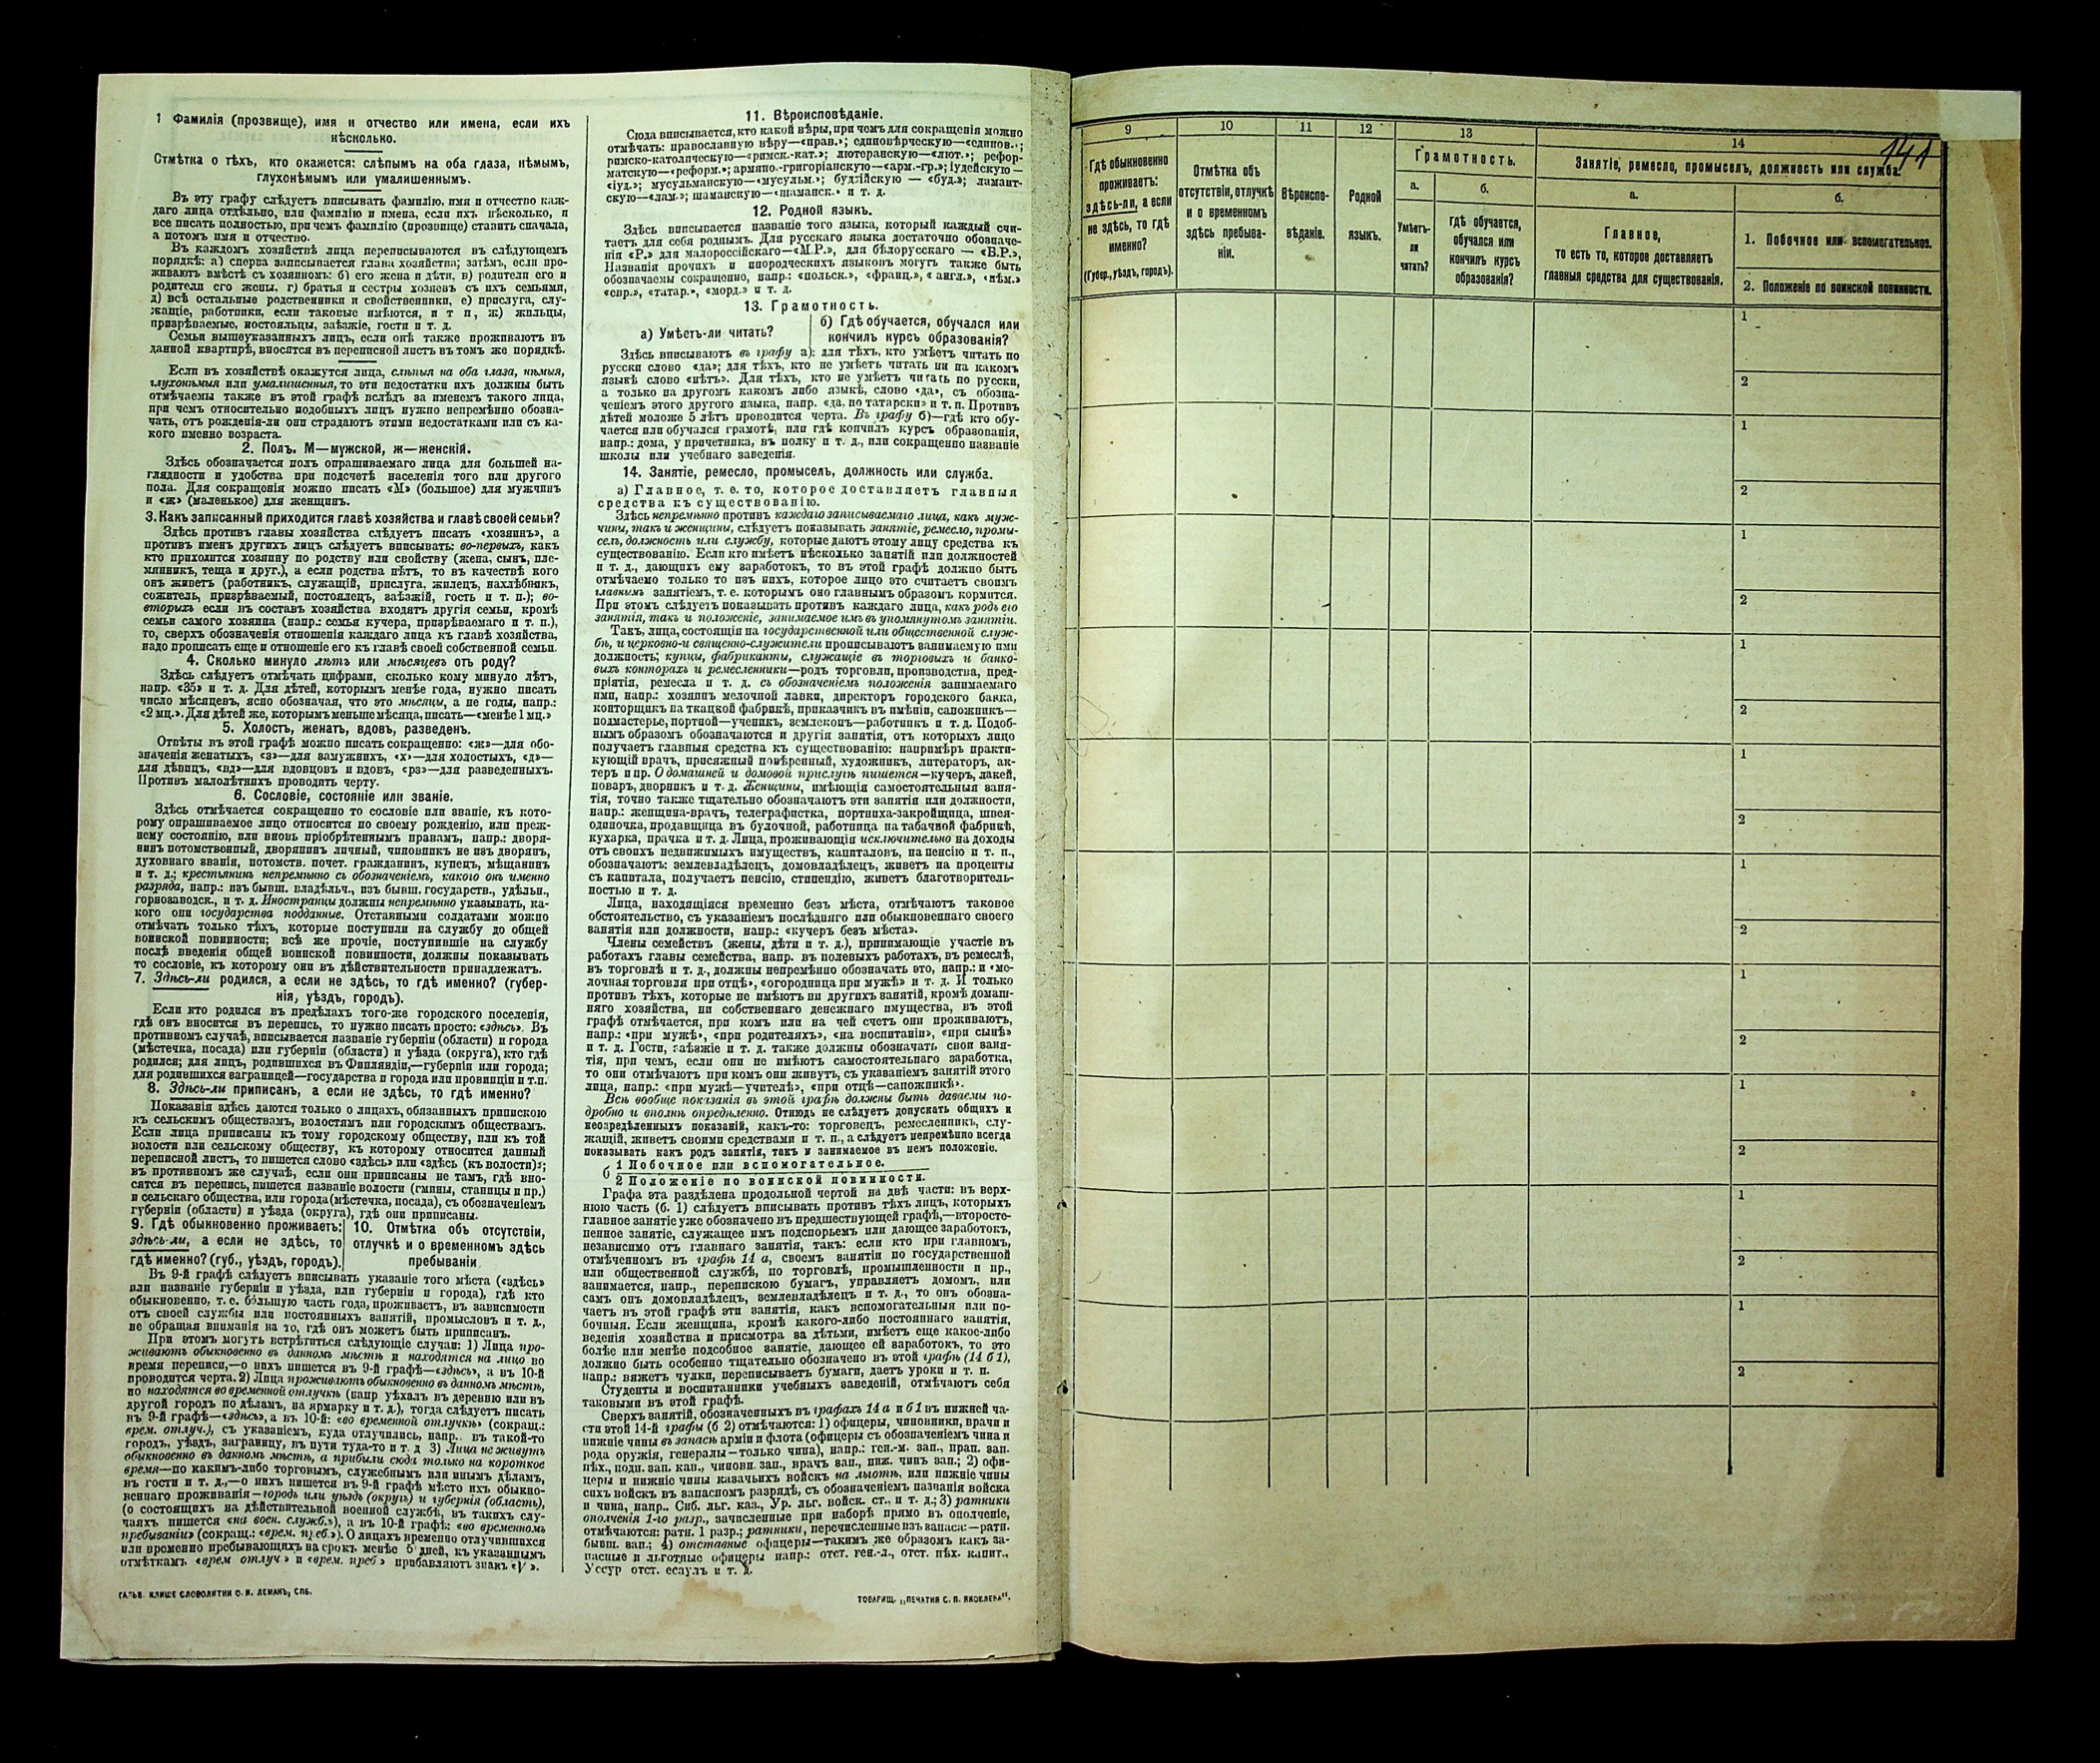 1 Фамилія (прозвище), имя и отчество или имена, если ихъ
нѣсколько.
Отмѣтка о тѣхъ, кто окажется: слѣпымъ на оба глаза, нѣмымъ,
глухонѣмымъ или умалишеннымъ.
Въ эту графу слѣдуетъ вписывать фамилію, имя и отчество каж-
даго лица отдѣльно, или фамилію и имена, если ихъ нѣсколько, и
все писать полностью, при чемъ фамилію (прозвище) ставить сначала,
а потомъ имя и отчество.
Въ каждомъ хозяйствѣ лица переписываются въ слѣдующемъ
порядкѣ: а) сперва записывается глава хозяйства; затѣмъ, если про-
живаютъ вмѣстѣ съ хозяиномъ: б) его жена и дѣти, в) родители его и
родители его жены, г) братья и сестры хозяевъ съ ихъ семьями,
д) всѣ остальные родственники и свойственники, е) прислуга, слу-
жащіе, работники, если таковые имѣются, и т п, ж) жильцы,
призрѣваемые, постояльцы, заѣзжіе, гости и т. д.
Семьи вышеуказанныхъ лицъ, если онѣ также проживаютъ въ
данной квартирѣ, вносятся въ переписной листъ въ томъ же порядкѣ.
Если въ хозяйствѣ окажутся лица, слѣпыя на оба глаза, нѣмыя,
глухонѣмыя или умалишенныя, то эти недостатки ихъ должны быть
отмѣчаемы также въ этой графѣ вслѣдъ за именемъ такого лица,
при чемъ относительно подобныхъ лицъ нужно непремѣнно обозна-
чать, отъ рожденія-ли они страдаютъ этими недостатками или съ ка-
кого именно возраста.
2. Полъ. М—мужской, ж—женскій.
Здѣсь обозначается полъ опрашиваемаго лица для большей на-
глядности и удобства при подсчетѣ населенія того или другого
пола. Для сокращенія можно писать «М» (большое) для мужчинъ
и «ж» (маленькое) для женщинъ.
3. Какъ записанный приходится главѣ хозяйства и главѣ своей семьи?
Здѣсь противъ главы хозяйства слѣдуетъ писать «хозяинъ», а
противъ именъ другихъ лицъ слѣдуетъ вписывать: во-первыхъ, какъ
кто приходится хозяину по родству или свойству (жена, сынъ, пле-
мянникъ, теща и друг.), а если родства нѣтъ, то въ качествѣ кого
онъ живетъ (работникъ, служащій, прислуга, жилецъ, нахлѣбникъ,
сожитель, призрѣваемый, постоялецъ, заѣзжій, гость и т. п.); во-
вторыхъ если въ составъ хозяйства входятъ другія семьи, кромѣ
семьи самого хозяина (напр.: семья кучера, призрѣваемаго и т. п.),
то, сверхъ обозначенія отношенія каждаго лица къ главѣ хозяйства,
надо прописать еще и отношеніе его къ главѣ своей собственной семьи.
4. Сколько минуло лѣтъ или мѣсяцевъ отъ роду?
Здѣсь слѣдуетъ отмѣчать цифрами, сколько кому минуло лѣтъ,
напр. «35» и т. д. Для дѣтей, которымъ менѣе года, нужно писать
число мѣсяцевъ, ясно обозначая, что это мѣсяцы, а не годы, напр.:
«2 мц.». Для дѣтей же, которымъ меньше мѣсяца, писать—«менѣе 1 мц.»
5. Холостъ, женатъ, вдовъ, разведенъ.
Отвѣты въ этой графѣ можно писать сокращенно: «ж»—для обо-
значенія женатыхъ, «з»—для замужнихъ, «х»—для холостыхъ, «д»—
для дѣвицъ, «вд»—для вдовцовъ и вдовъ, «рз»—для разведенныхъ.
Противъ малолѣтнихъ проводить черту.
6. Сословіе, состояніе или званіе.
Здѣсь отмѣчается сокращенно то сословіе или званіе, къ кото-
рому опрашиваемое лицо относится по своему рожденію, или преж-
нему состоянію, или вновь пріобрѣтеннымъ правамъ, напр.: дворя-
нинъ потомственный, дворянинъ личный, чиновникъ не изъ дворянъ,
духовнаго званія, потомств. почет. гражданинъ, купецъ, мѣщанинъ
и т. д.; крестьянинъ непремѣнно съ обозначеніемъ, какого онъ именно
разряда, напр.: изъ бывш. владѣльч., изъ бывш. государств., удѣльн.,
горнозаводск., и т. д. Иностранцы должны непремѣнно указывать, ка-
кого они государства подданные. Отставными солдатами можно
отмѣчать только тѣхъ, которые поступили на службу до общей
воинской повинности; всѣ же прочіе, поступившіе на службу
послѣ введенія общей воинской повинности, должны показывать
то сословіе, къ которому они въ дѣйствительности принадлежатъ.
7. Здѣсь-ли родился, а если не здѣсь, то гдѣ именно? (губер-
нія, уѣздъ, городъ).
Если кто родился въ предѣлахъ того-же городского поселенія,
гдѣ онъ вносится въ перепись, то нужно писать просто: «здѣсь». Въ
противномъ случаѣ, вписывается названіе губерніи (области) и города
(мѣстечка, посада) или губерніи (области) и уѣзда (округа), кто гдѣ
родился; для лицъ, родившихся въ Финляндіи,—губерніи или города;
для родившихся заграницей—государства и города или провинціи и т.п.
8. Здѣсь-ли приписанъ, а если не здѣсь, то гдѣ именно?
Показанія здѣсь даются только о лицахъ, обязанныхъ припискою
къ сельскимъ обществамъ, волостямъ или городскимъ обществамъ.
Если лица приписаны къ тому городскому обществу, или къ той
волости или сельскому обществу, къ которому относится данный
переписной листъ, то пишется слово «здѣсь» или «здѣсь (къ волости)»;
въ противномъ же случаѣ, если они приписаны не тамъ, гдѣ вно-
сятся въ перепись, пишется названіе волости (гмины, станицы и пр.)
и сельскаго общества, или города (мѣстечка, посада), съ обозначеніемъ
губерніи (области) и уѣзда (округа), гдѣ они приписаны.
9. Гдѣ обыкновенно проживаетъ:
здѣсь-ли, а если не здѣсь, то
гдѣ именно? (губ., уѣздъ, городъ).
10. Отмѣтка объ отсутствіи,
отлучкѣ и о временномъ здѣсь
пребываніи.
Въ 9-й графѣ слѣдуетъ вписывать указаніе того мѣста («здѣсь»
или названіе губерніи и уѣзда, или губерніи и города), гдѣ кто
обыкновенно, т. е. бо́льшую часть года, проживаетъ, въ зависимости
отъ своей службы или постоянныхъ занятій, промысловъ и т. д.,
не обращая вниманія на то, гдѣ онъ можетъ быть приписанъ.
При этомъ могутъ встрѣтиться слѣдующіе случаи: 1) Лица про-
живаютъ обыкновенно въ данномъ мѣстѣ и находятся на лицо во
время переписи,—о нихъ пишется въ 9-й графѣ—«здѣсь», а въ 10-й
проводится черта. 2) Лица проживаютъ обыкновенно въ данномъ мѣстѣ,
но находятся во временной отлучкѣ (напр уѣхалъ въ деревню или въ
другой городъ по дѣламъ, на ярмарку и т. д.), тогда слѣдуетъ писать
въ 9-й графѣ—«здѣсь», а въ 10-й: «во временной отлучкѣ» (сокращ.:
врем. отлуч.), съ указаніемъ, куда отлучились, напр. въ такой-то
городъ, уѣздъ, заграницу, въ пути туда-то и т. д 3) Лица не живутъ
обыкновенно въ данномъ мѣстѣ, а прибыли сюда только на короткое
время—по какимъ-либо торговымъ, служебнымъ или инымъ дѣламъ,
въ гости и т. д.,—о нихъ пишется въ 9-й графѣ мѣсто ихъ обыкно-
веннаго проживанія—городъ или уѣздъ (округъ) и губернія (область),
(о состоящихъ на дѣйствительной военной службѣ, въ такихъ слу-
чаяхъ пишется «на воен. служб.»), а въ 10-й графѣ: «во временномъ
пребываніи» (сокращ.: «врем. преб.»). О лицахъ временно отлучившихся
или временно пребывающихъ на срокъ менѣе 5 дней, къ указаннымъ
отмѣткамъ «врем отлуч» и «врем. преб» прибавляютъ знакъ «V».
ГАЛЬВ. КЛИШЕ СЛОВОЛИТНИ О. И. ЛЕМАНЪ, СПБ.
11. Вѣроисповѣданіе.
Сюда вписывается, кто какой вѣры, при чемъ для сокращенія можно
отмѣчать: православную вѣру—«прав.»; единовѣрческую—«единов.»;
римско-католическую—«римск.-кат.»; лютеранскую—«лют.»; рефор-
матскую—«реформ.»; армяно.-григоріанскую—«арм.-гр.»; іудейскую—
«іуд.»; мусульманскую—«мусульм.»; буддійскую — «буд.»; ламаит-
скую—«лам.»; шаманскую—«шаманск.» и т. д.
12. Родной языкъ.
Здѣсь вписывается названіе того языка, который каждый счи-
таетъ для себя роднымъ. Для русскаго языка достаточно обозначе-
нія «Р.» для малороссійскаго—«М.Р.», для бѣлорусскаго — «Б.Р.»,
Названія прочихъ и инородческихъ языковъ могутъ также быть
обозначаемы сокращенно, напр.: «польск.», «франц.», « англ.», «нѣм.»
«евр.», «татар.», «морд.» и т. д.
13. Грамотность.
а) Умѣетъ-ли читать?
б) Гдѣ обучается, обучался или
кончилъ курсъ образованія?
Здѣсь вписываютъ въ графу а): для тѣхъ, кто умѣетъ читать по
русски слово «да»; для тѣхъ, кто не умѣетъ читать ни на какомъ
языкѣ слово «нѣтъ». Для тѣхъ, кто не умѣетъ читать по русски,
а только на другомъ какомъ либо языкѣ, слово «да», съ обозна-
ченіемъ этого другого языка, напр. «да, по татарски» и т. п. Противъ
дѣтей моложе 5 лѣтъ проводится черта. Въ графу б)—гдѣ кто обу-
чается или обучался грамотѣ, или гдѣ кончилъ курсъ образованія,
напр.: дома, у причетника, въ полку и т. д., или сокращенно названіе
школы или учебнаго заведенія.
14. Занятіе, ремесло, промыселъ, должность или служба.
а) Главное, т. е. то, которое доставляетъ главныя
средства къ существованію.
Здѣсь непремѣнно противъ каждаго записываемаго лица, какъ муж-
чины, такъ и женщины, слѣдуетъ показывать занятіе, ремесло, промы-
селъ, должность или службу, которые даютъ этому лицу средства къ
существованію. Если кто имѣетъ нѣсколько занятій или должностей
и т. д., дающихъ ему заработокъ, то въ этой графѣ должно быть
отмѣчаемо только то изъ нихъ, которое лицо это считаетъ своимъ
главнымъ занятіемъ, т. е. которымъ оно главнымъ образомъ кормится.
При этомъ слѣдуетъ показывать противъ каждаго лица, какъ родъ его
занятія, такъ и положеніе, занимаемое имъ въ упомянутомъ занятіи.
Такъ, лица, состоящія на государственной или общественной служ-
бѣ, и церковно-и священно-служители прописываютъ занимаемую ими
должность; купцы, фабриканты, служащіе въ торговыхъ и банко-
выхъ конторахъ и ремесленники—родъ торговли, производства, пред-
пріятія, ремесла и т. д. съ обозначеніемъ положенія занимаемаго
ими, напр.: хозяинъ мелочной лавки, директоръ городского банка,
конторщикъ на ткацкой фабрикѣ, приказчикъ въ имѣніи, сапожникъ—
подмастерье, портной—ученикъ, землекопъ—работникъ и т. д. Подоб-
нымъ образомъ обозначаются и другія занятія, отъ которыхъ лицо
получаетъ главныя средства къ существованію: напримѣръ практи-
кующій врачъ, присяжный повѣренный, художникъ, литераторъ, ак-
теръ и пр. О домашней и домовой прислугѣ пишется—кучеръ, лакей,
поваръ, дворникъ и т. д. Женщины, имѣющія самостоятельныя заня-
тія, точно также тщательно обозначаютъ эти занятія или должности,
напр.: женщина-врачъ, телеграфистка, портниха-закройщица, швея-
одиночка, продавщица въ булочной, работница на табачной фабрикѣ,
кухарка, прачка и т. д. Лица, проживающія исключительно на доходы
отъ своихъ недвижимыхъ имуществъ, капиталовъ, на пенсію и т. п.,
обозначаютъ: землевладѣлецъ, домовладѣлецъ, живетъ на проценты
съ капитала, получаетъ пенсію, стипендію, живетъ благотворитель-
ностью и т. д.
Лица, находящіяся временно безъ мѣста, отмѣчаютъ таковое
обстоятельство, съ указаніемъ послѣдняго или обыкновеннаго своего
занятія или должности, напр.: «кучеръ безъ мѣста».
Члены семействъ (жены, дѣти и т. д.), принимающіе участіе въ
работахъ главы семейства, напр. въ полевыхъ работахъ, въ ремеслѣ,
въ торговлѣ и т. д., должны непремѣнно обозначать это, напр.: и «ме-
лочная торговля при отцѣ», «огородница при мужѣ» и т. д. И только
противъ тѣхъ, которые не имѣютъ ни другихъ занятій, кромѣ домаш-
няго хозяйства, ни собственнаго денежнаго имущества, въ этой
графѣ отмѣчается, при комъ или на чей счетъ они проживаютъ,
напр.: «при мужѣ», «при родителяхъ», «на воспитаніи», «при сынѣ»
и т. д. Гости, заѣзжіе и т. д. также должны обозначать свои заня-
тія, при чемъ, если они не имѣютъ самостоятельнаго заработка,
то они отмѣчаютъ при комъ они живутъ, съ указаніемъ занятій этого
лица, напр.: «при мужѣ—учителѣ», «при отцѣ—сапожникѣ».
Всѣ вообще показанія въ этой графѣ должны быть даваемы по-
дробно и вполнѣ опредѣленно. Отнюдь не слѣдуетъ допускать общихъ и
неопредѣленныхъ показаній, какъ-то: торговецъ, ремесленникъ, слу-
жащій, живетъ своими средствами и т. п., а слѣдуетъ непремѣнно всегда
показывать какъ родъ занятія, такъ и занимаемое въ немъ положеніе.
б 1 Побочное или вспомогательное.
2 Положеніе по воинской повинности.
Графа эта раздѣлена продольной чертой на двѣ части: въ верх-
нюю часть (б. 1) слѣдуетъ вписывать противъ тѣхъ лицъ, которыхъ
главное занятіе уже обозначено въ предшествующей графѣ,—второсте-
пенное занятіе, служащее имъ подспорьемъ или дающее заработокъ,
независимо отъ главнаго занятія, такъ: если кто при главномъ,
отмѣченномъ въ графѣ 14 а, своемъ занятіи по государственной
или общественной службѣ, по торговлѣ, промышленности и пр.,
занимается, напр., перепискою бумагъ, управляетъ домомъ, или
самъ онъ домовладѣлецъ, землевладѣлецъ и т. д., то онъ обозна-
чаетъ въ этой графѣ эти занятія, какъ вспомогательныя или по-
бочныя. Если женщина, кромѣ какого-либо постояннаго занятія,
веденія хозяйства и присмотра за дѣтьми, имѣетъ еще какое-либо
болѣе или менѣе подсобное занятіе, дающее ей заработокъ, то это
должно быть особенно тщательно обозначено въ этой графѣ (14 б 1),
напр.: вяжетъ чулки, переписываетъ бумаги, даетъ уроки и т. п.
Студенты и воспитанники учебныхъ заведеній, отмѣчаютъ себя
таковыми въ этой графѣ.
Сверхъ занятій, обозначенныхъ въ графахъ 14 а и б 1 въ нижней ча-
сти этой 14-й графы (б 2) отмѣчаются: 1) офицеры, чиновники, врачи и
нижніе чины въ запасѣ арміи и флота (офицеры съ обозначеніемъ чина и
рода оружія, генералы—только чина), напр.: ген.-м. зап., прап. зап.
пѣх., подп. зап. кав., чиновн. зап., врачъ зап., ниж. чинъ зап.; 2) офи-
церы и нижніе чины казачьихъ войскъ на льготѣ, или нижніе чины
сихъ войскъ въ запасномъ разрядѣ, съ обозначеніемъ названія войска
и чина, напр.. Сиб. льг. каз., Ур. льг. войск. ст., и т. д.; 3) ратники
ополченія 1-го разр., зачисленные при наборѣ прямо въ ополченіе,
отмѣчаются: ратн. 1 разр.; ратники, перечисленные изъ запаса:—ратн.
бывш. зап.; 4) отставные офицеры—такимъ же образомъ какъ за-
пасные и льготные офицеры напр.: отст. ген.-л., отст. пѣх. капит.,
Уссур отст. есаулъ и т. д.
ТОВАРИЩ. „ПЕЧАТНЯ С. П. ЯКОВЛЕВА".
141
9 10 11 12 13 14
Гдѣ обыкновенно
проживаетъ:
здѣсь-ли, а если
не здѣсь, то гдѣ
именно?
(Губер., уѣздъ, городъ).
Отмѣтка объ
отсутствіи, отлучкѣ
и о временномъ
здѣсь пребыва-
ніи.
Вѣроиспо-
вѣданіе.
Родной
языкъ.
Грамотность.
а.
Умѣетъ-
ли
читать?
б.
гдѣ обучается,
обучался или
кончилъ курсъ
образованія?
Занятіе, ремесло, промыселъ, должность или служба.
а.
Главное,
то есть то, которое доставляетъ
главныя средства для существованія.
б.
1. Побочное или вспомогательное.
2. Положеніе по воинской повинности.
1
2
1
2
1
2
1
2
1
2
1
2
1
2
1
2
1
2
1
2